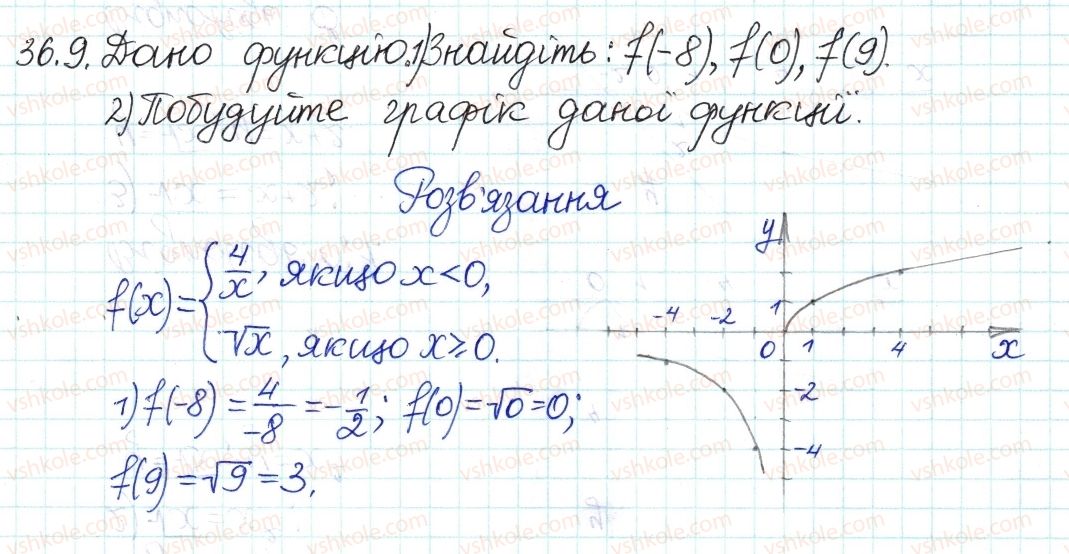 36.9. Дано функцію. 1) Знайдіть: f(-8), f(0), f(9).
2) Побудуйте графік даної функції.
Розв'язання
f(x) = { 4/x, якщо x < 0,
√x, якщо x ≥ 0.
1) f(-8) = 4/-8 = -1/2; f(0) = √0 = 0;
f(9) = √9 = 3.
y
-4 -2 1
0 1 4 x
-2
-4
vshkole.com